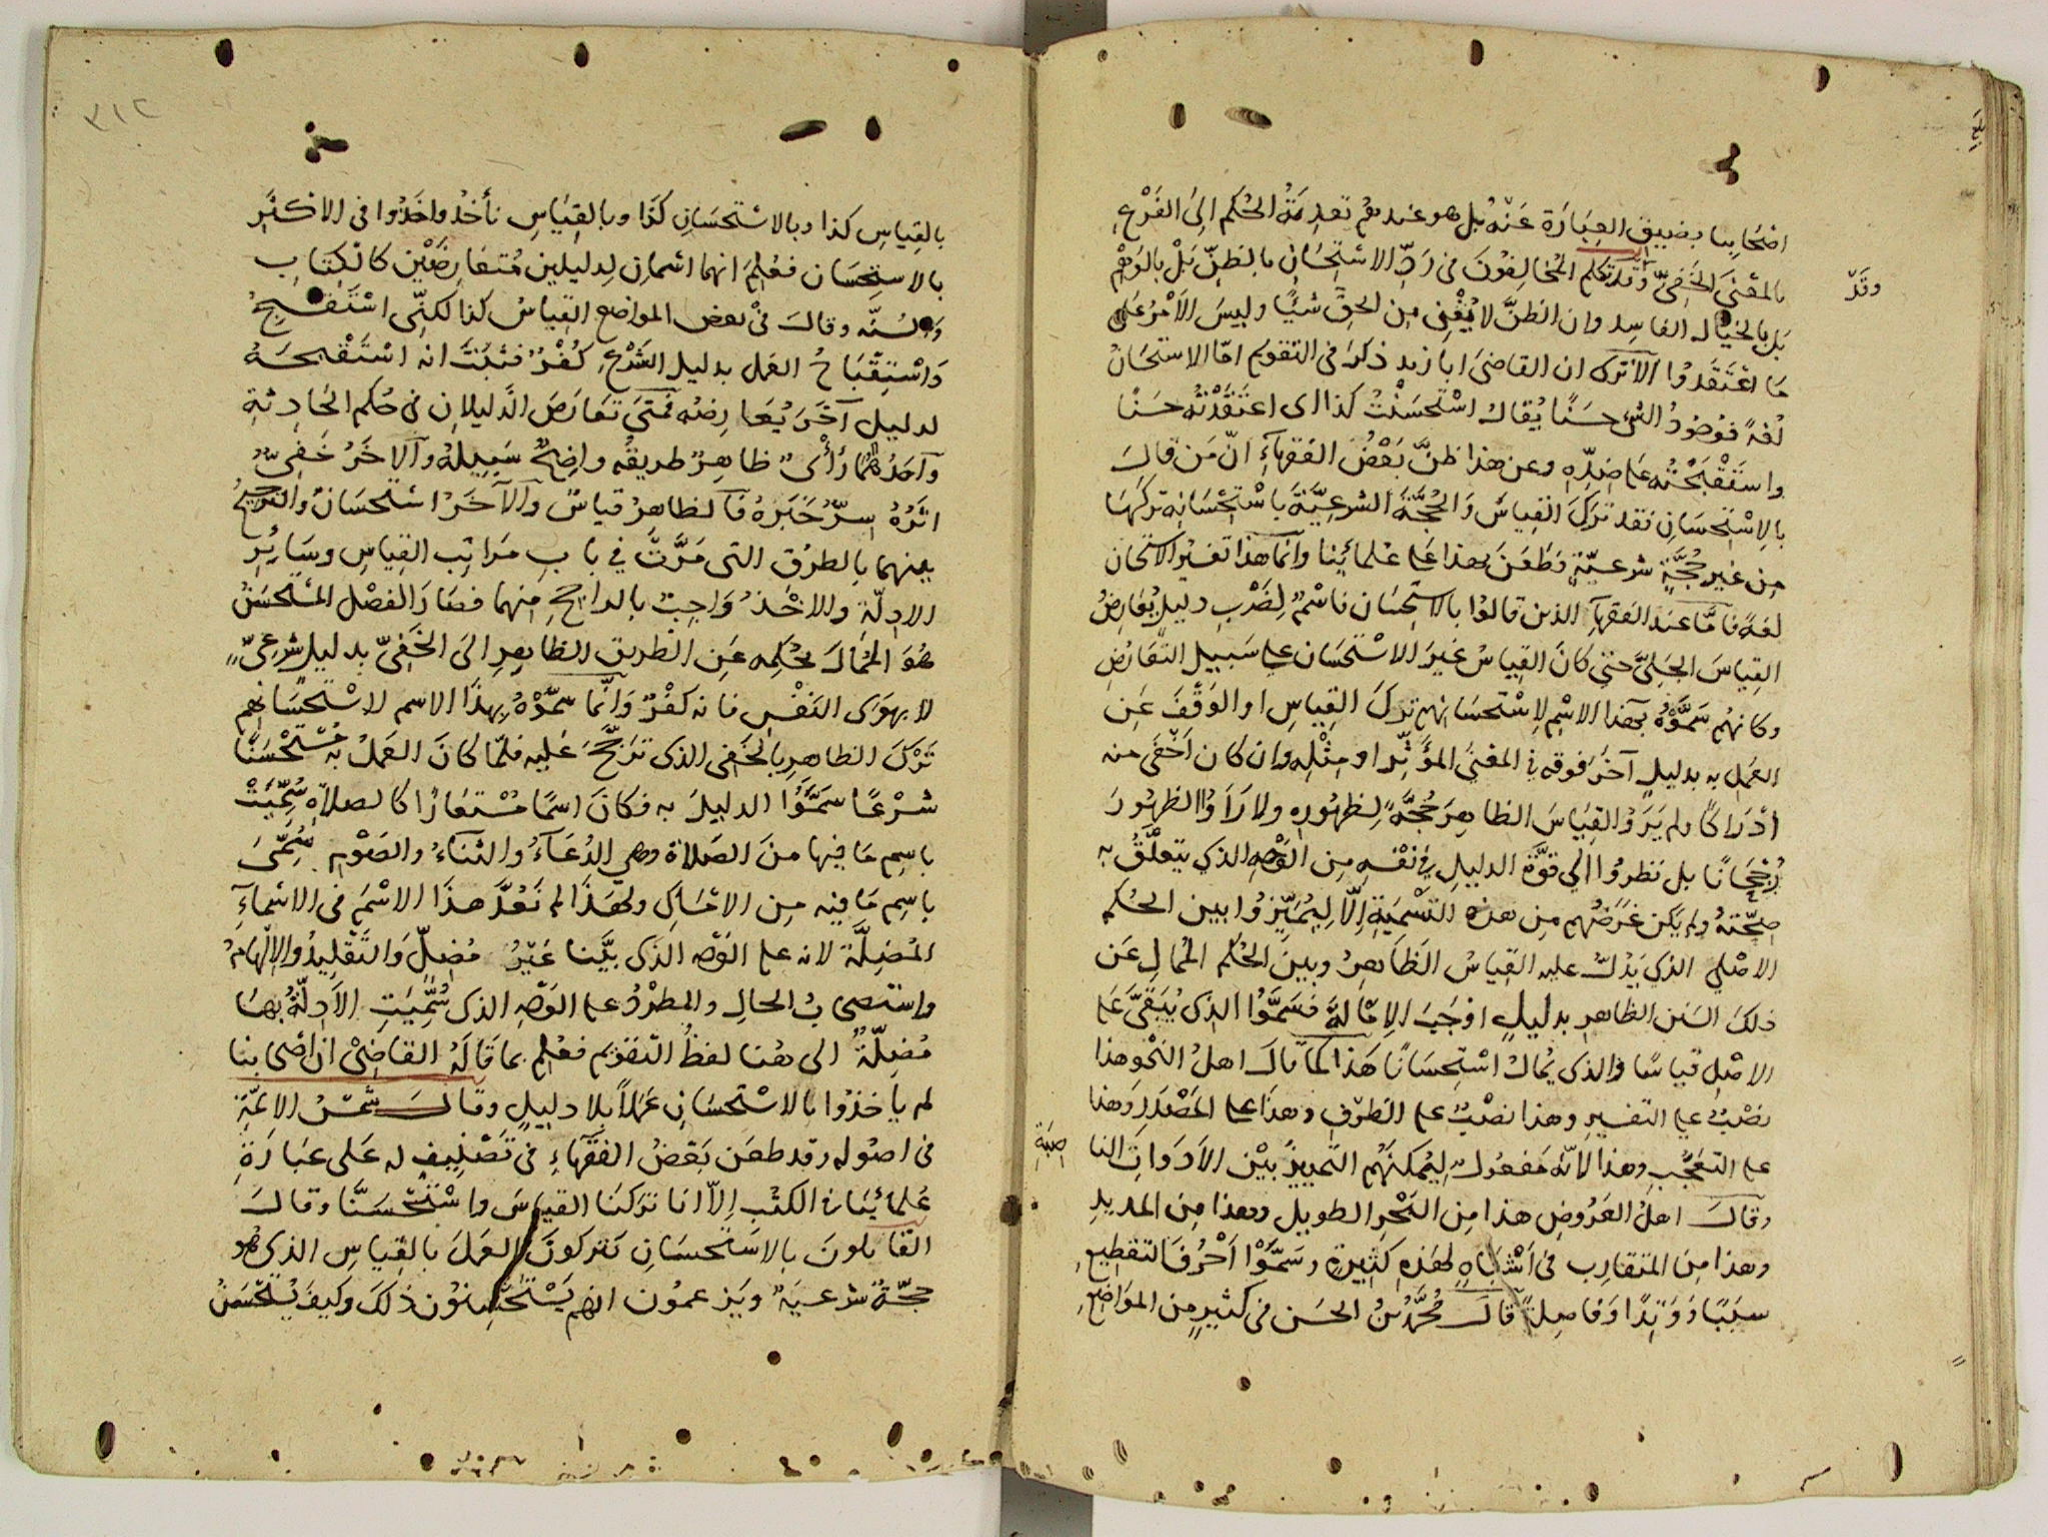 اصحابنا بضيق العبارة عنه بل هو عندهم تعدية الحكم الى الفرع
بالمعنى الخفيّ وقد تكلم المخالفون في ردّ الاستحسان بالظنّ بَلْ بالوهم
وقدْ
بل بالخيال الفاسد وان الظنّ لا يُغْنِي من الحقّ شيئًا وليس الاَمْرُ على
ما اعْتَقَدُوا الا ترى ان القاضي ابا زيد ذكر في التقويم امّا الاستحسانُ
لُغةً فوجُودُ الشيء حسنًا يُقالُ استحسنْتُ كذا اى اعتَقَدْتُه حسَنًا
واستَقْبَحْتُه على ضدّه وعن هذا ظنَّ بعْضُ الفقهاءِ انّ مَن قالَ
بالاِسْتحسانِ فقد تركَ القِياسَ وَالحُجَّةَ الشرعيّةَ باسْتِحْسَانِه تركَهَا
من غير حُجَّةٍ شرعيّةٍ فطَعَنَ بهذا على علمائِنا وانّما هذا تفسيرُ الاستحسان
لغةً فامّا عندَ الفقهآءِ الذين قالوُا بالاستحسان فاسْمٌ لِضَرْبِ دليلٍ يُعَارِضُ
القياسَ الجليَّ حتى كانَ القِياسُ غيرَ الاسْتحسَان على سَبيلِ التّعارُضِ
وكانهُم سَمَّوْهُ بهذا الاسْمِ لاِسْتحسَانهم تركَ القِياسِ او الوَقْفَ عَن
العَمل به بدليلٍ آخرَ فوقه في المعْنَى المؤثِّر او مِثْلِه وان كان اَخْفَى منه
ادْرَاكًا ولم يَرَوُا القِيَاسَ الظاهِرَ حُجَّةً لِظُهورهِ ولا رَأَوُا الظهُورَ
رُجْحَانًا بل نظروُا الى قوَّة الدليلِ في نفْسِه مِن الوَجْهِ الذي يتعلَّقُ به
صِحّتهُ ولم يَكن غَرَضُهم مِن هذه التَسْميَةِ اِلّا لِيُمَيِّزوُا بين الحُكم
الاصْلي الذي يَدُلُّ عليه القِياسُ الظَاهِرُ وبينَ الحُكم المُمالِ عَن
ذلكَ السَنن الظاهرِ بدليلٍ اوْجَبَ الاِمالةَ فَسَمَّوُا الذي يُبَقَّى عَلى
الاصْلِ قياسًا والذي يُمالُ اسْتِحسَانًا هَذا كما قالَ اهلُ النحْو هذا
نصْبٌ على التفسيرِ وهذا نَصْبٌ على الظرْفِ وهذَا على المَصْدَرِ وهذا
على التعَجُّبِ وهذا لانّهُ مَفعُولٌ لِيُمكنَهُم التمييزُ بيْن الاَدَوَاتِ النا
صِبَةِ
وقالَ اهلُ العَرُوضِ هذا مِن البَحْرِ الطويلِ وهذا مِن المديدِ
وهذا مِنَ المتقارِب في اَشْبَاهٍ لهذهِ كثِيرةٍ وسَمَّوْا اَحْرُفَ التقطيعِ
سبَبًا وَوَتِدًا وَفَاصِلةً قالَ مُحمَّدُ بنُ الحَسَن في كثيرٍ مِن المواضِع
٣١٢
بالقِياسِ كذا وبالاسْتحسَانِ كَذَا وبالقِيَاسِ نأخُذُ واخَذُوا في الاكثَرِ
بالاستِحسَان فعُلِمَ انهما اسْمانِ لدليلين مُتعَارِضَيْن كالكتابِ
وَالسُنّه وقالَ في بعض المواضع القِياسُ كذا لكنّى اسْتَقْبِحُ
وَاسْتِقْبَاحُ العَمل بدليل الشَرْعِ كُفْرٌ فثبَتَ انه اسْتَقْبحَهُ
لدليلٍ آخَرَ يُعَارِضُه فمتى تعَارَضَ الدّليلانِ في حُكم الحَادِثةِ
وَاَحَدُهُمَا رَأْىٌ ظاهِرٌ طريقُه واضِحٌ سَبِيلهُ والآخَرُ خَفِىٌّ
اثَرُهُ سِرٌّ خَبَرُهُ فالظاهِرُ قياسٌ والآخَرُ اسْتحسَانٌ والترجيحُ
بينهما بالطرُق التى مَرَّتْ في بابِ مَراتِب القِياسِ وسَايُرِ
الادِلّة والاخْذُ وَاجِبٌ بالراجحِ مِنهما فصَارَ الفصْل المُسْتحسَنُ
هُوَ المُمالَ بحُكمِه عَن الطريق الظاهِرِ الى الخَفِىِّ بدليلٍ شرْعِىٍّ
لا بهوَى النفْس فانه كفْرٌ وَانّما سمَّوْهُ بهذَا الاسم لاسْتحْسَانهِم
تَرْكَ الظاهِرِ بالخَفِى الذى تَرَجَّحَ عَليه فلمّا كانَ العَملُ به مُسْتَحْسَنًا
شرْعًا سَمَّوُا الدليلَ به فكانَ اسمًا مُسْتعَارًا كالصلاةِ سُمِّيَتْ
باسِمِ مَا فيها مِنَ الصَلاة وهي الدُعَآءُ والثناءُ والصَوْمِ سُمِّىَ
باسِم مَا فيه مِن الامْسَاكِ ولهذَا لم نَعُدَّ هذَا الاسْمَ في الاسْماءِ
المُضِلَّة لانه على الوَجْه الذى بَيَّنا غَيْرُ مُضِلٍّ وَالتَقْلِيدُ والالْهَامُ
واستصحابُ الحالِ والطرْدُ على الوَجْهِ الذى سُمِّيَتِ الاَدِلّةُ بِهَا
مُضِلّةٌ الى هُنا لفظُ التقويم فعُلِم بما قَالَهُ القَاضِىْ ان اصْحابنا
لم يأخذُوا بالاسْتحسَانِ عَملاً بلا دليلٍ وقالَ شمْسُ الاَئمّةِ
في اصُوله وقد طعَن بَعْضُ الفقَهاءِ في تَصْنِيفٍ له عَلى عبَارَةِ
عُلمائِنا في الكتُب اِلاّ انا ترَكنَا القياسَ واسْتَحْسَنَّا وقالَ
القائلونَ بالاستحسَانِ يَتركونَ العَملَ بالقياسِ الذي هو
حجّةٌ شرعيَةٌ ويَزعمُون انهم يَسْتَحْسِنُون ذلكَ وكيفَ يُسْتَحْسَنُ